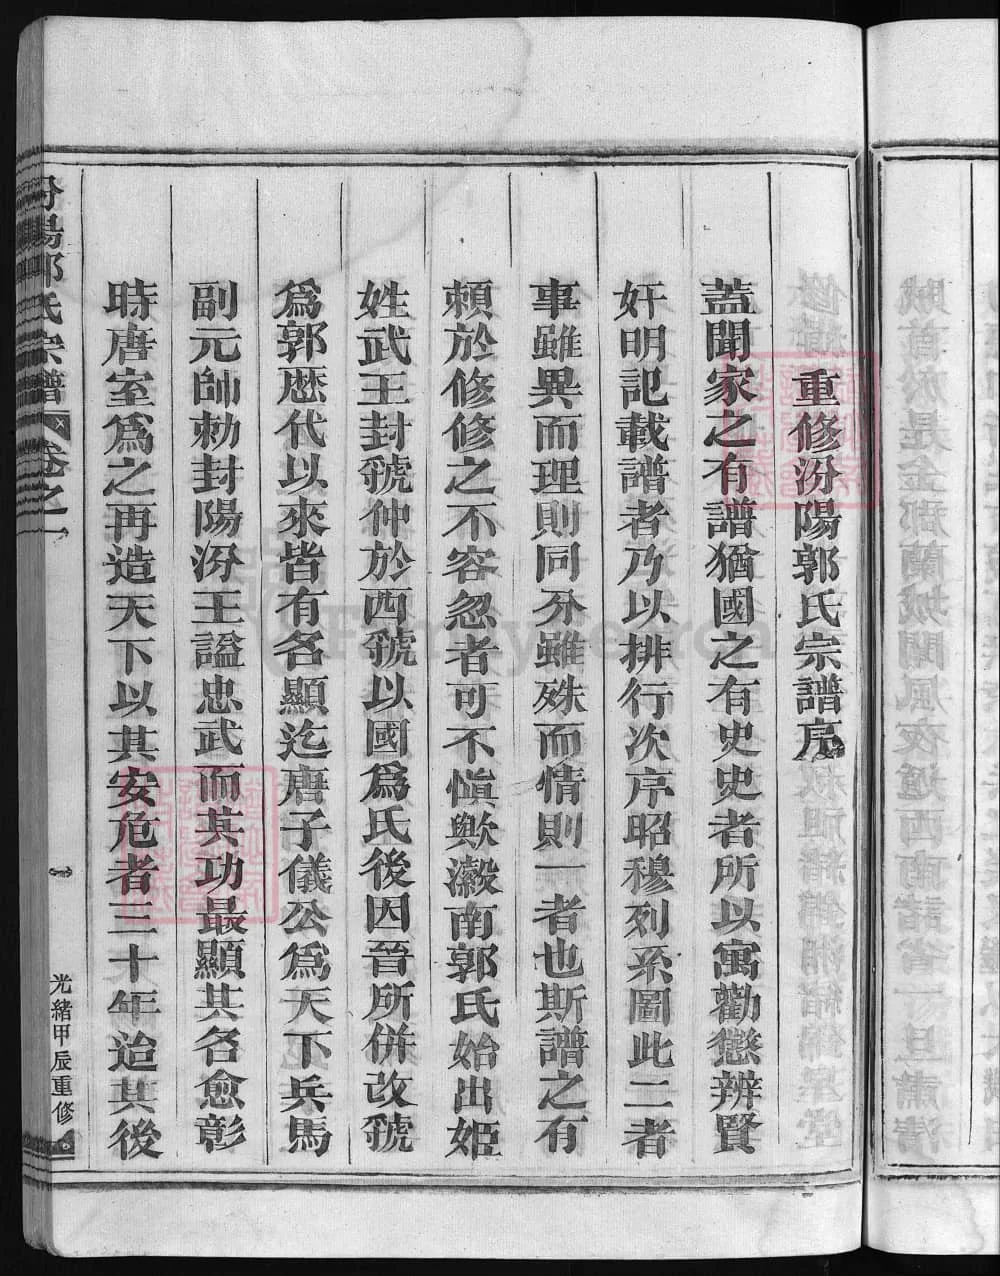 重修汾陽郭氏宗譜序
蓋聞家之有譜猶國之有史史者所以寓勸懲辨賢
奸明記載譜者乃以排行次序昭穆列系圖此二者
事雖異而理則同分雖殊而情則一者也斯譜之有
頼於修修之不容忽者可不愼歟瀫南郭氏始出姬
姓武王封虢仲於西虢以國爲氏後因晉所併改虢
爲郭歷代以來皆有名顯迄唐子儀公爲天下兵馬
副元帥勅封陽汾王謚忠武而其功最顯其名愈彰
時唐室爲之再造天下以其安危者三十年迨其後
汾陽郭氏宗譜 卷之一
一
光緒甲辰重修